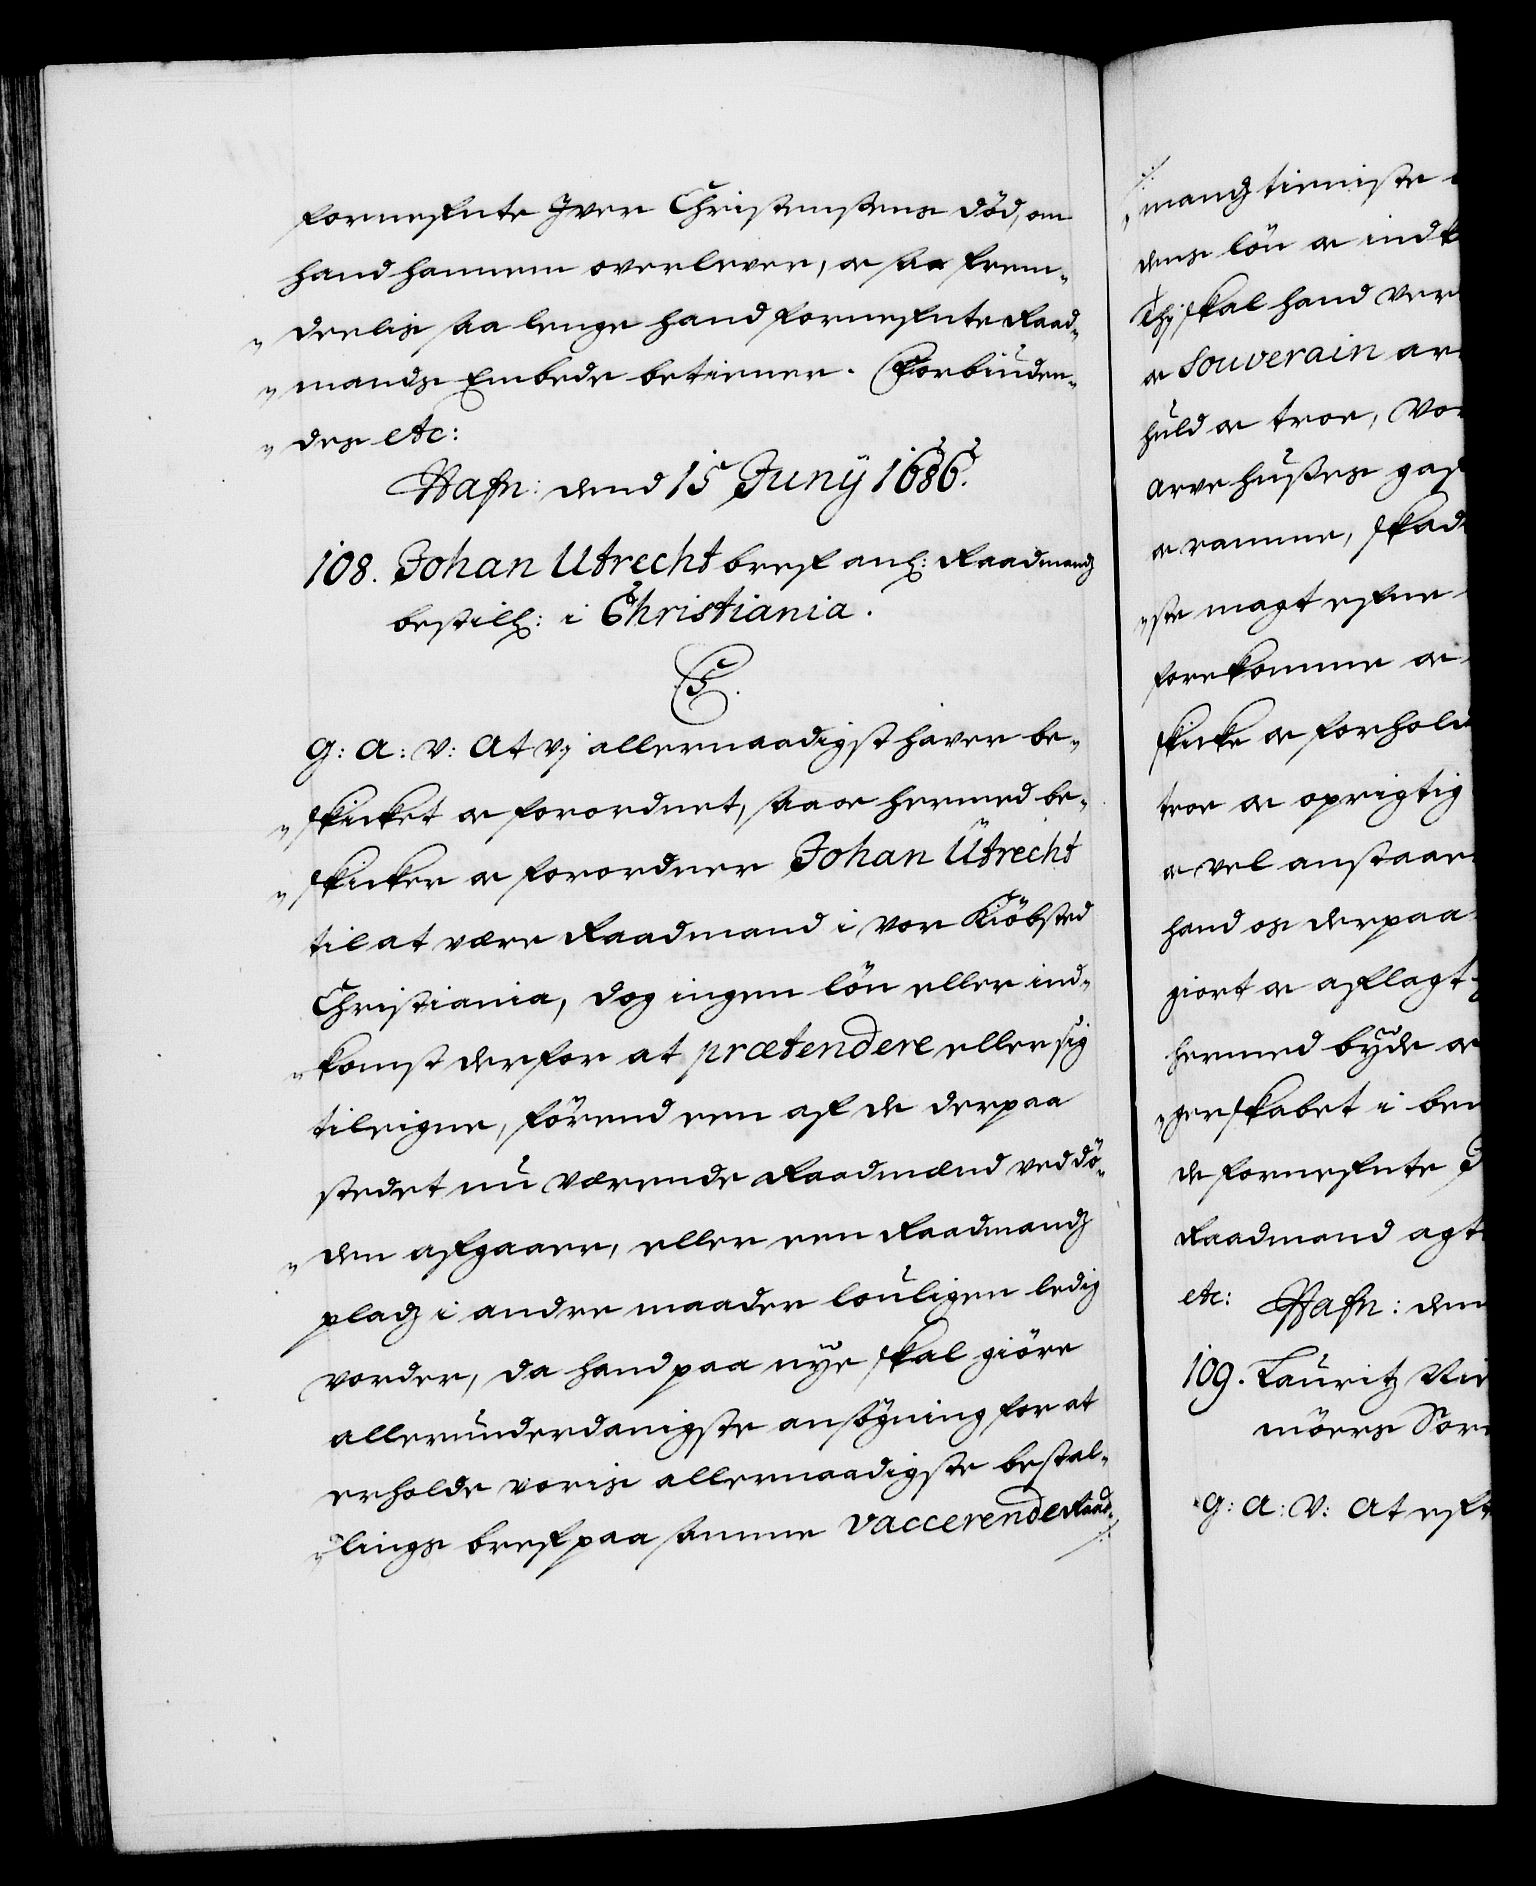 fornefnte Jver Christensens död, om
hand hannem overlever, oc saa frem¬
„delis saa lenge hand fornefnte Raad„
„mands Embede betiener. Forbiuden„
„des etc:
Hafn: dend 15 Junÿ 1686.
108. Johan Utrecht bref anl: Raadmandz
bestill: i Christiania.
C5.
G: A: V: At vj allernaadigst haver be„
„skicket oc forordnet, saa oc hermed be„
„skicker oc forordner Johan Utrecht
til at være Raadmand i vor Kiöbsted
Christiania, dog ingen lön eller ind„
„komst derfor at prætendere eller sig
tileigne, förend een af de derpaa
stedet nu værende Raadmænd ved dö„
„den afgaaer, eller een Raadmandz
pladz i andre maader louligen ledig
vorder, da hand paa nye skal giöre
allerunderdanigste ansögning for at
erholde voris allernaadigste bestal„
„lings bref paa samme vaccerende Raad„
mandz tieniste
dens lön oc indk
Thj skal hand ver
oc Souverain ar
huld oc troe, Vor
arve huses gaf
oc ramme, skad
„ste magt efne
forekomme oc
skicke oc forhold
troe oc oprigtig
oc vel anstaar
hand os derpaa
giort oc aflagt
hermed byde oc
„gerskabet i ben
de fornefnte J
Raadmand agt
etc: Hafn: den
109. Lauritz Nie
möers Sor
G: A: V: At eft